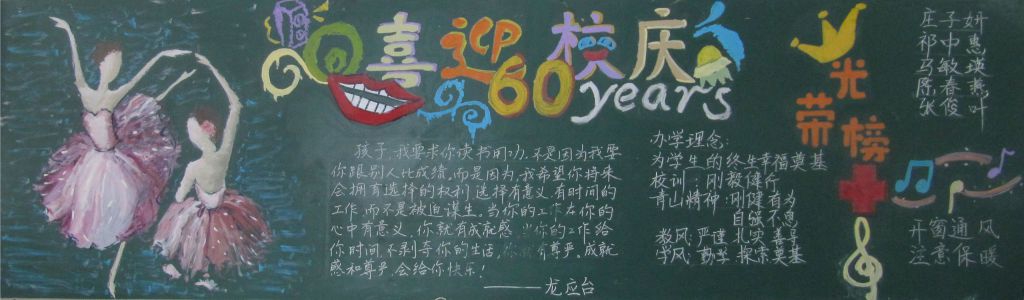 喜迎校庆
60 years
孩子,我要求你读书用功,不是因为我要
你跟别人比成绩,而是因为,我希望你将来
会拥有选择的权利,选择有意义,有时间的
工作,而不是被迫谋生。当你的工作在你的
心中有意义,你就有成就感,当你的工作给
你时间,不剥夺你的生活,你就有尊严。成就
感和尊严,会给你快乐!
——龙应台
办学理念:
为学生的终生幸福奠基
校训:刚毅健行
青山精神:刚健有为
自强不息
教风:严谨 扎实 善导
学风:勤学 探索 奠基
光荣榜
庄子妍
祁中惠
马敏
春燕
张俊叶
开窗通风
注意保暖